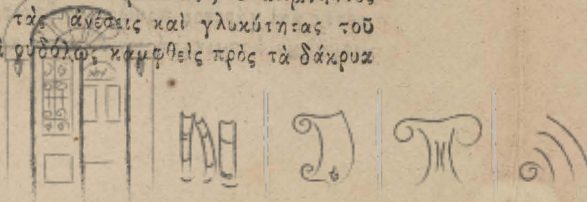 τὰς ἀνέσεις καὶ γλυκύτητας τοῦ
οὐδόλως καμφθεὶς πρὸς τὰ δάκρυα